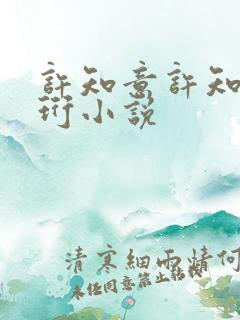 許知意許知
珩小說
清寒細雨情何
未任同意禁止転載